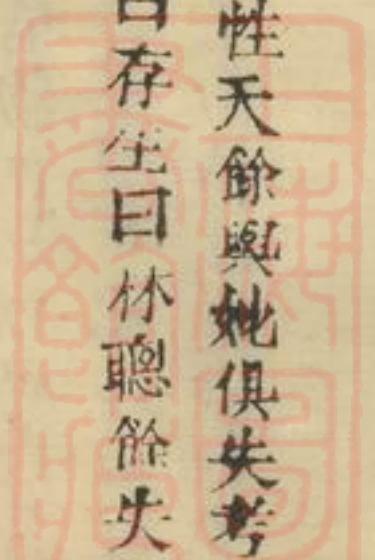 性天餘與妣俱失考
曰存生曰休聰餘失